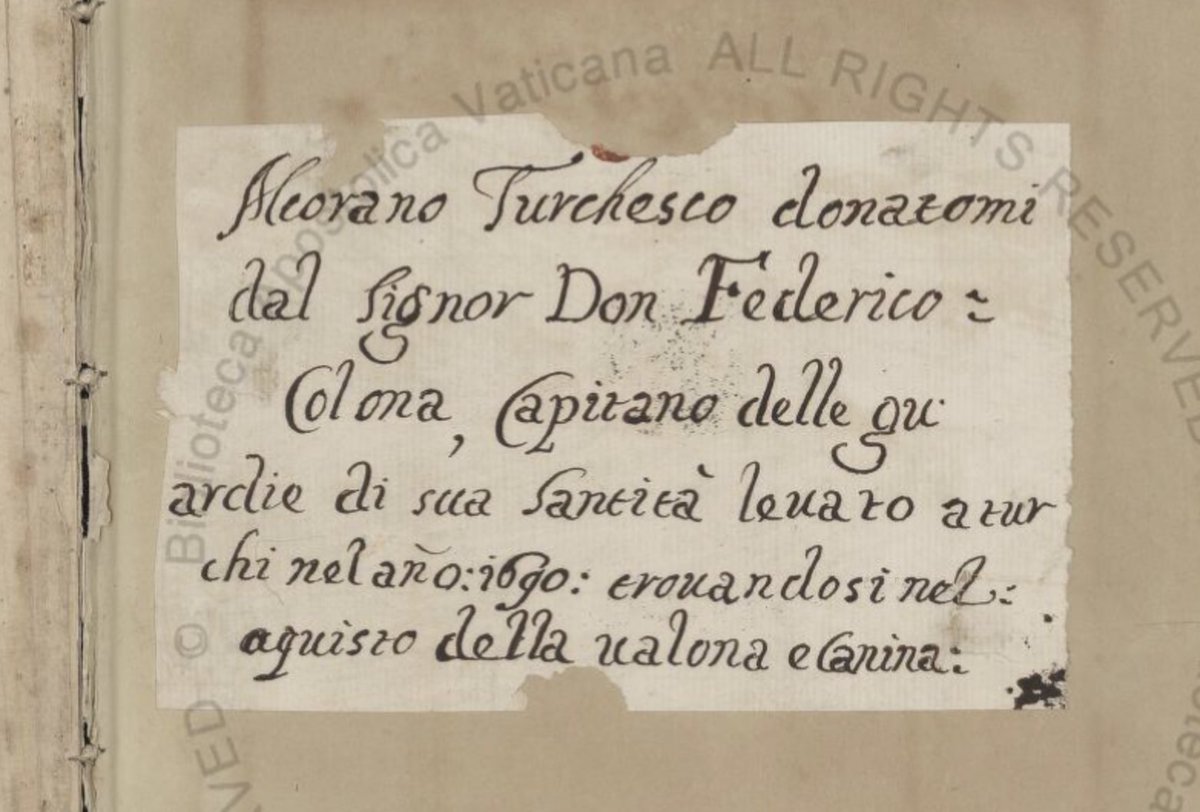 Alcorano Turchesco donatomi
dal Signor Don Federico =
Colona, Capitano delle gu
ardie di sua Santità leuato a tur
chi nel año: 1690: trouandosi nel:
aquisto della ualona e Canina:
© Biblioteca Apostolica Vaticana ALL RIGHTS RESERVED